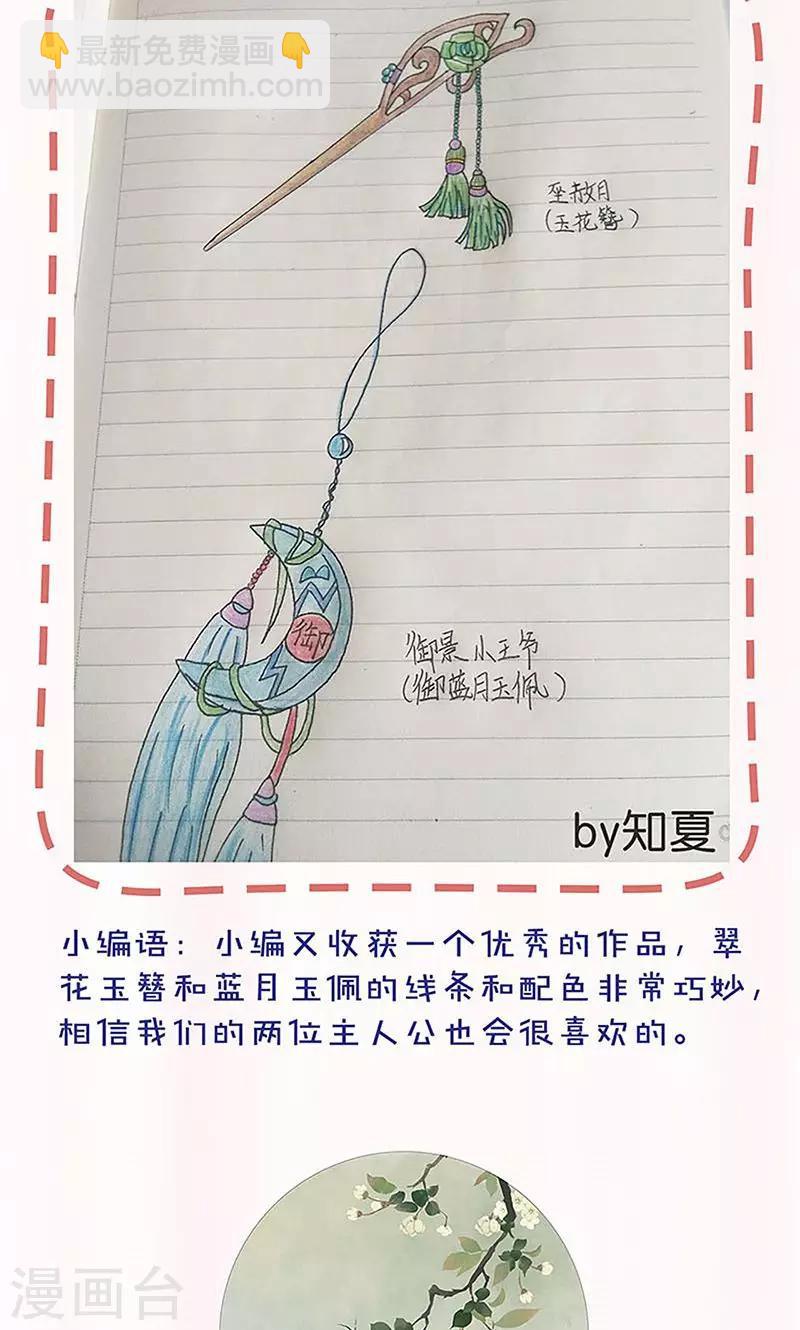 👇最新免费漫画👇
www.baozimh.com
巫赦月
(玉花簪)
御
御景小王爷
(御蓝月玉佩)
by知夏
小编语：小编又收获一个优秀的作品，翠
花玉簪和蓝月玉佩的线条和配色非常巧妙，
相信我们的两位主人公也会很喜欢的。
漫画台